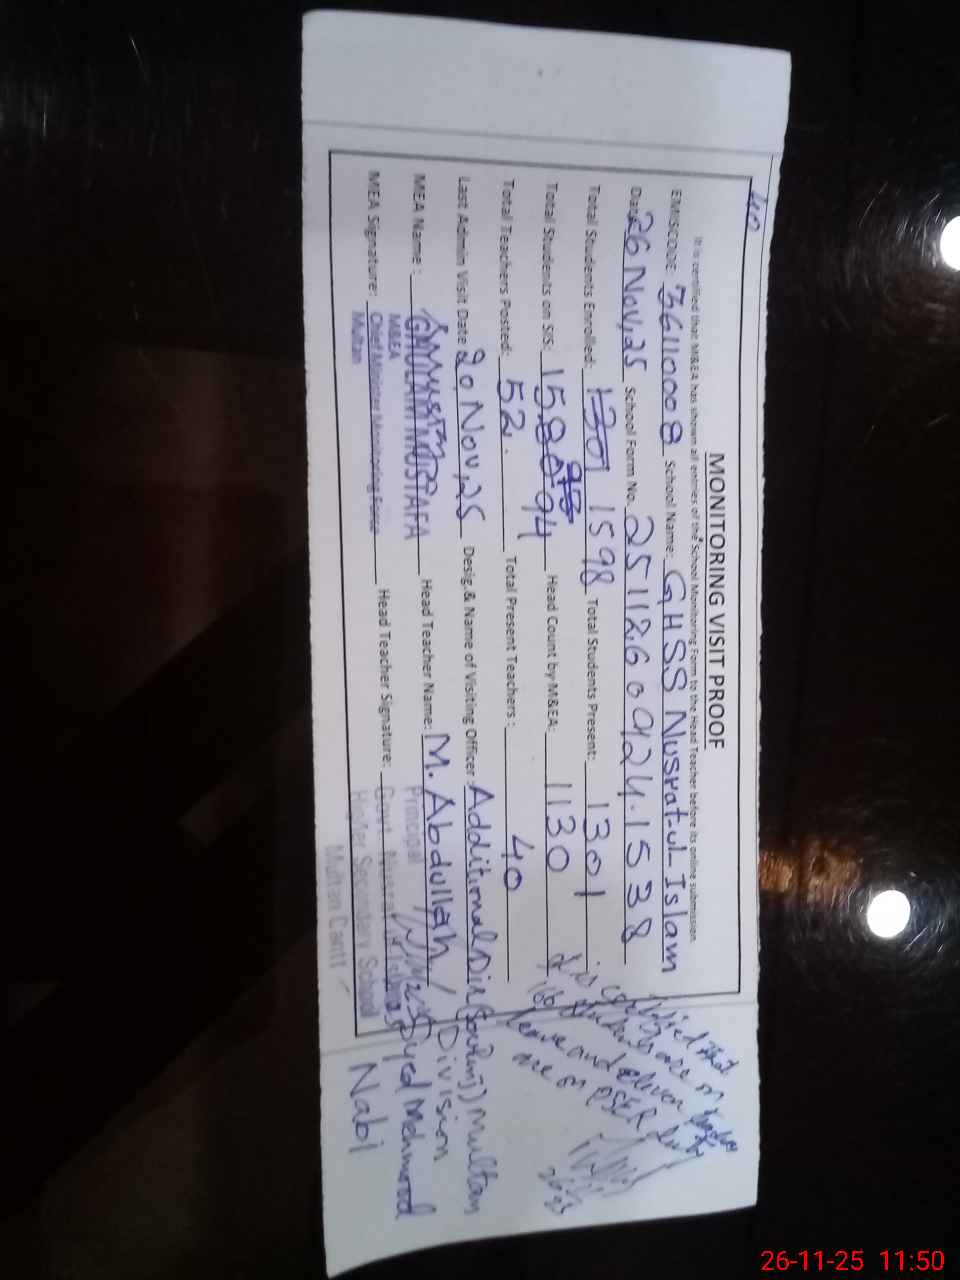 MONITORING VISIT PROOF
It is certified that M&EA has shown all entries of the School Monitoring Form to the Head Teacher before its online submission
EMISCODE: 36110008 School Name: GHSS Nusrat-ul-Islam
Date 26 Nov,25 School Form No. 251126 0924.1538
Total Students Enrolled: 1301 1598 Total Students Present: 1301
Total Students on SIS: 1580 94 Head Count by M&EA: 1130
Total Teachers Posted: 52. Total Present Teachers: 40
Last Admin Visit Date 20 Nov,25 Desig.& Name of Visiting Officer: Additional Dir Multan
Division
MEA Name: GHULAM MUSTAFA Head Teacher Name: M. Abdullah / Syed Mehmood
Nabi
MEA Signature: Head Teacher Signature:
M&EA
Chief Minister Monitoring Force
Multan
Principal
Govt. Nusrat
Higher Secondary School
Multan Cantt
are on
leave and eleven
are on PSER duty
26-11-25 11:50